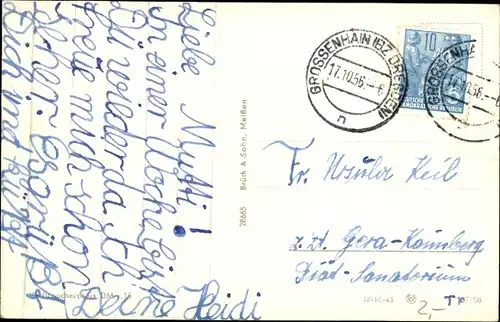 Liebe Mutti!
In einer Woche bist
Du wieder da. Ich
freue mich schon
sehr. Es grüßt
Dich und küßt
Deine Heidi
Verbraucherpreis DM -,15
28665 Brück & Sohn, Meißen
GROSSENHAIN (BZ. DRESDEN)
17.10.56.-6
n
10
DEUTSCHE
DEMOKRATISCHE REPUBLIK
GROSSENHA
.10.56.-6
Fr. Ursula Keil
z.Zt. Gera-
Diät-Sanatorium
2,-